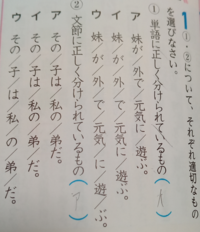 1 ①・②について、それぞれ適切なもの
を選びなさい。
① 単語に正しく分けられているもの( イ )
ア 妹が/外で/元気に/遊ぶ。
イ 妹/が/外/で/元気に/遊ぶ。
ウ 妹/が/外/で/元気/に/遊/ぶ。
② 文節に正しく分けられているもの( ア )
ア その/子は/私の/弟だ。
イ その子は/私の/弟だ。
ウ その/子/は/私/の/弟/だ。